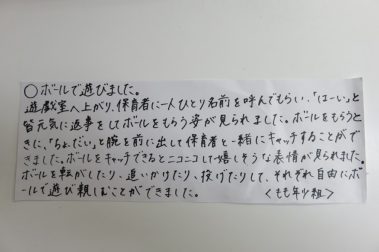 ○ボールで遊びました。
遊戯室へ上がり、保育者に一人ひとり名前を呼んでもらい、「はーい」と
皆元気に返事をしてボールをもらう姿が見られました。ボールをもらうと
きに、「ちょうだい」と腕を前に出して保育者と一緒にキャッチすることがで
きました。ボールをキャッチできるとニコニコして嬉しそうな表情が見られました。
ボールを転がしたり、追いかけたり、投げたりして、それぞれ自由にボ
ールで遊び親しむことができました。 <もも年少組>